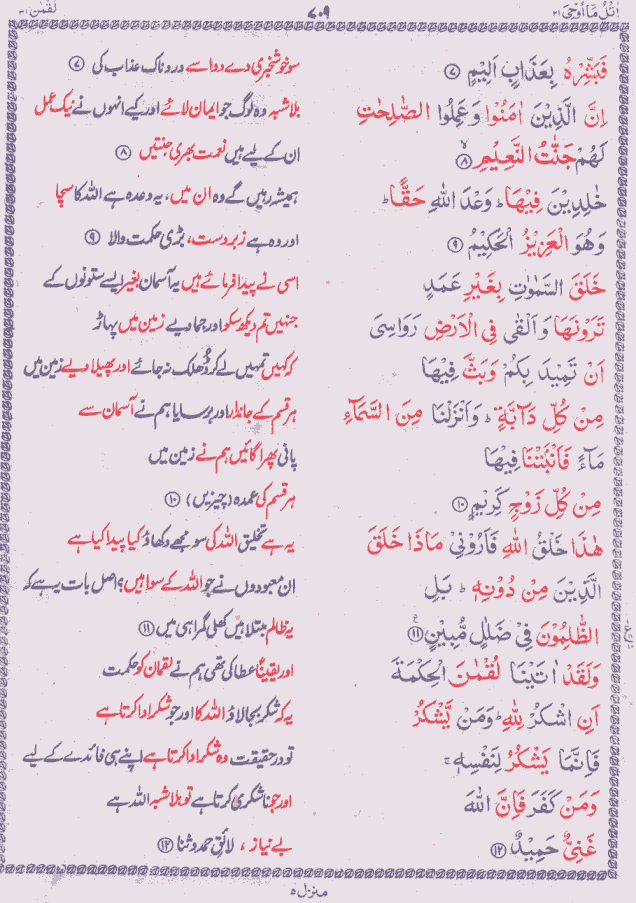 اتل مآ اوحی ۲۱
۷۰۹
لقمٰن ۳۱
فَبَشِّرْهُ بِعَذَابٍ اَلِیْمٍ ۷
سو خوشخبری دے دو اسے دردناک عذاب کی ۷
اِنَّ الَّذِیْنَ اٰمَنُوْا وَعَمِلُوا الصّٰلِحٰتِ
بلاشبہ وہ لوگ جو ایمان لائے اور کیے انہوں نے نیک عمل
لَهُمْ جَنّٰتُ النَّعِیْمِ ۸
ان کے لیے ہیں نعمت بھری جنتیں ۸
خٰلِدِیْنَ فِیْهَا ؕ وَعْدَ اللّٰهِ حَقًّا ؕ
ہمیشہ رہیں گے وہ ان میں، یہ وعدہ ہے اللہ کا سچا
وَهُوَ الْعَزِیْزُ الْحَكِیْمُ ۹
اور وہ ہے زبردست، بڑی حکمت والا ۹
خَلَقَ السَّمٰوٰتِ بِغَیْرِ عَمَدٍ
اسی نے پیدا فرمائے ہیں یہ آسمان بغیر ایسے ستونوں کے
تَرَوْنَهَا وَاَلْقٰی فِی الْاَرْضِ رَوَاسِیَ
جنہیں تم دیکھ سکو اور جما دیے زمین میں پہاڑ
اَنْ تَمِیْدَ بِكُمْ وَبَثَّ فِیْهَا
کہ کہیں تمہیں لے کر ڈھلک نہ جائے اور پھیلا دیے زمین میں
مِنْ كُلِّ دَآبَّةٍ ؕ وَاَنْزَلْنَا مِنَ السَّمَآءِ
ہر قسم کے جاندار اور برسایا ہم نے آسمان سے
مَآءً فَاَنْۢبَتْنَا فِیْهَا
پانی پھر اگائیں ہم نے زمین میں
مِنْ كُلِّ زَوْجٍ كَرِیْمٍ ۱۰
ہر قسم کی عمدہ (چیزیں) ۱۰
هٰذَا خَلْقُ اللّٰهِ فَاَرُوْنِیْ مَاذَا خَلَقَ
یہ ہے تخلیق اللہ کی سو مجھے دکھاؤ کیا پیدا کیا ہے
الَّذِیْنَ مِنْ دُوْنِهٖ ؕ بَلِ
ان معبودوں نے جو اللہ کے سوا ہیں؟ اصل بات یہ ہے کہ
الظّٰلِمُوْنَ فِیْ ضَلٰلٍ مُّبِیْنٍ ۱۱
یہ ظالم مبتلا ہیں کھلی گمراہی میں ۱۱
وَلَقَدْ اٰتَیْنَا لُقْمٰنَ الْحِكْمَةَ
اور یقیناً عطا کی تھی ہم نے لقمان کو حکمت
اَنِ اشْكُرْ لِلّٰهِ ؕ وَمَنْ یَّشْكُرْ
یہ کہ شکر بجا لاؤ اللہ کا اور جو شکر ادا کرتا ہے
فَاِنَّمَا یَشْكُرُ لِنَفْسِهٖ ۚ
تو درحقیقت وہ شکر ادا کرتا ہے اپنے ہی فائدے کے لیے
وَمَنْ كَفَرَ فَاِنَّ اللّٰهَ
اور جو ناشکری کرتا ہے تو بلاشبہ اللہ ہے
غَنِیٌّ حَمِیْدٌ ۱۲
بے نیاز، لائق حمد و ثنا ۱۲
منزل ۵